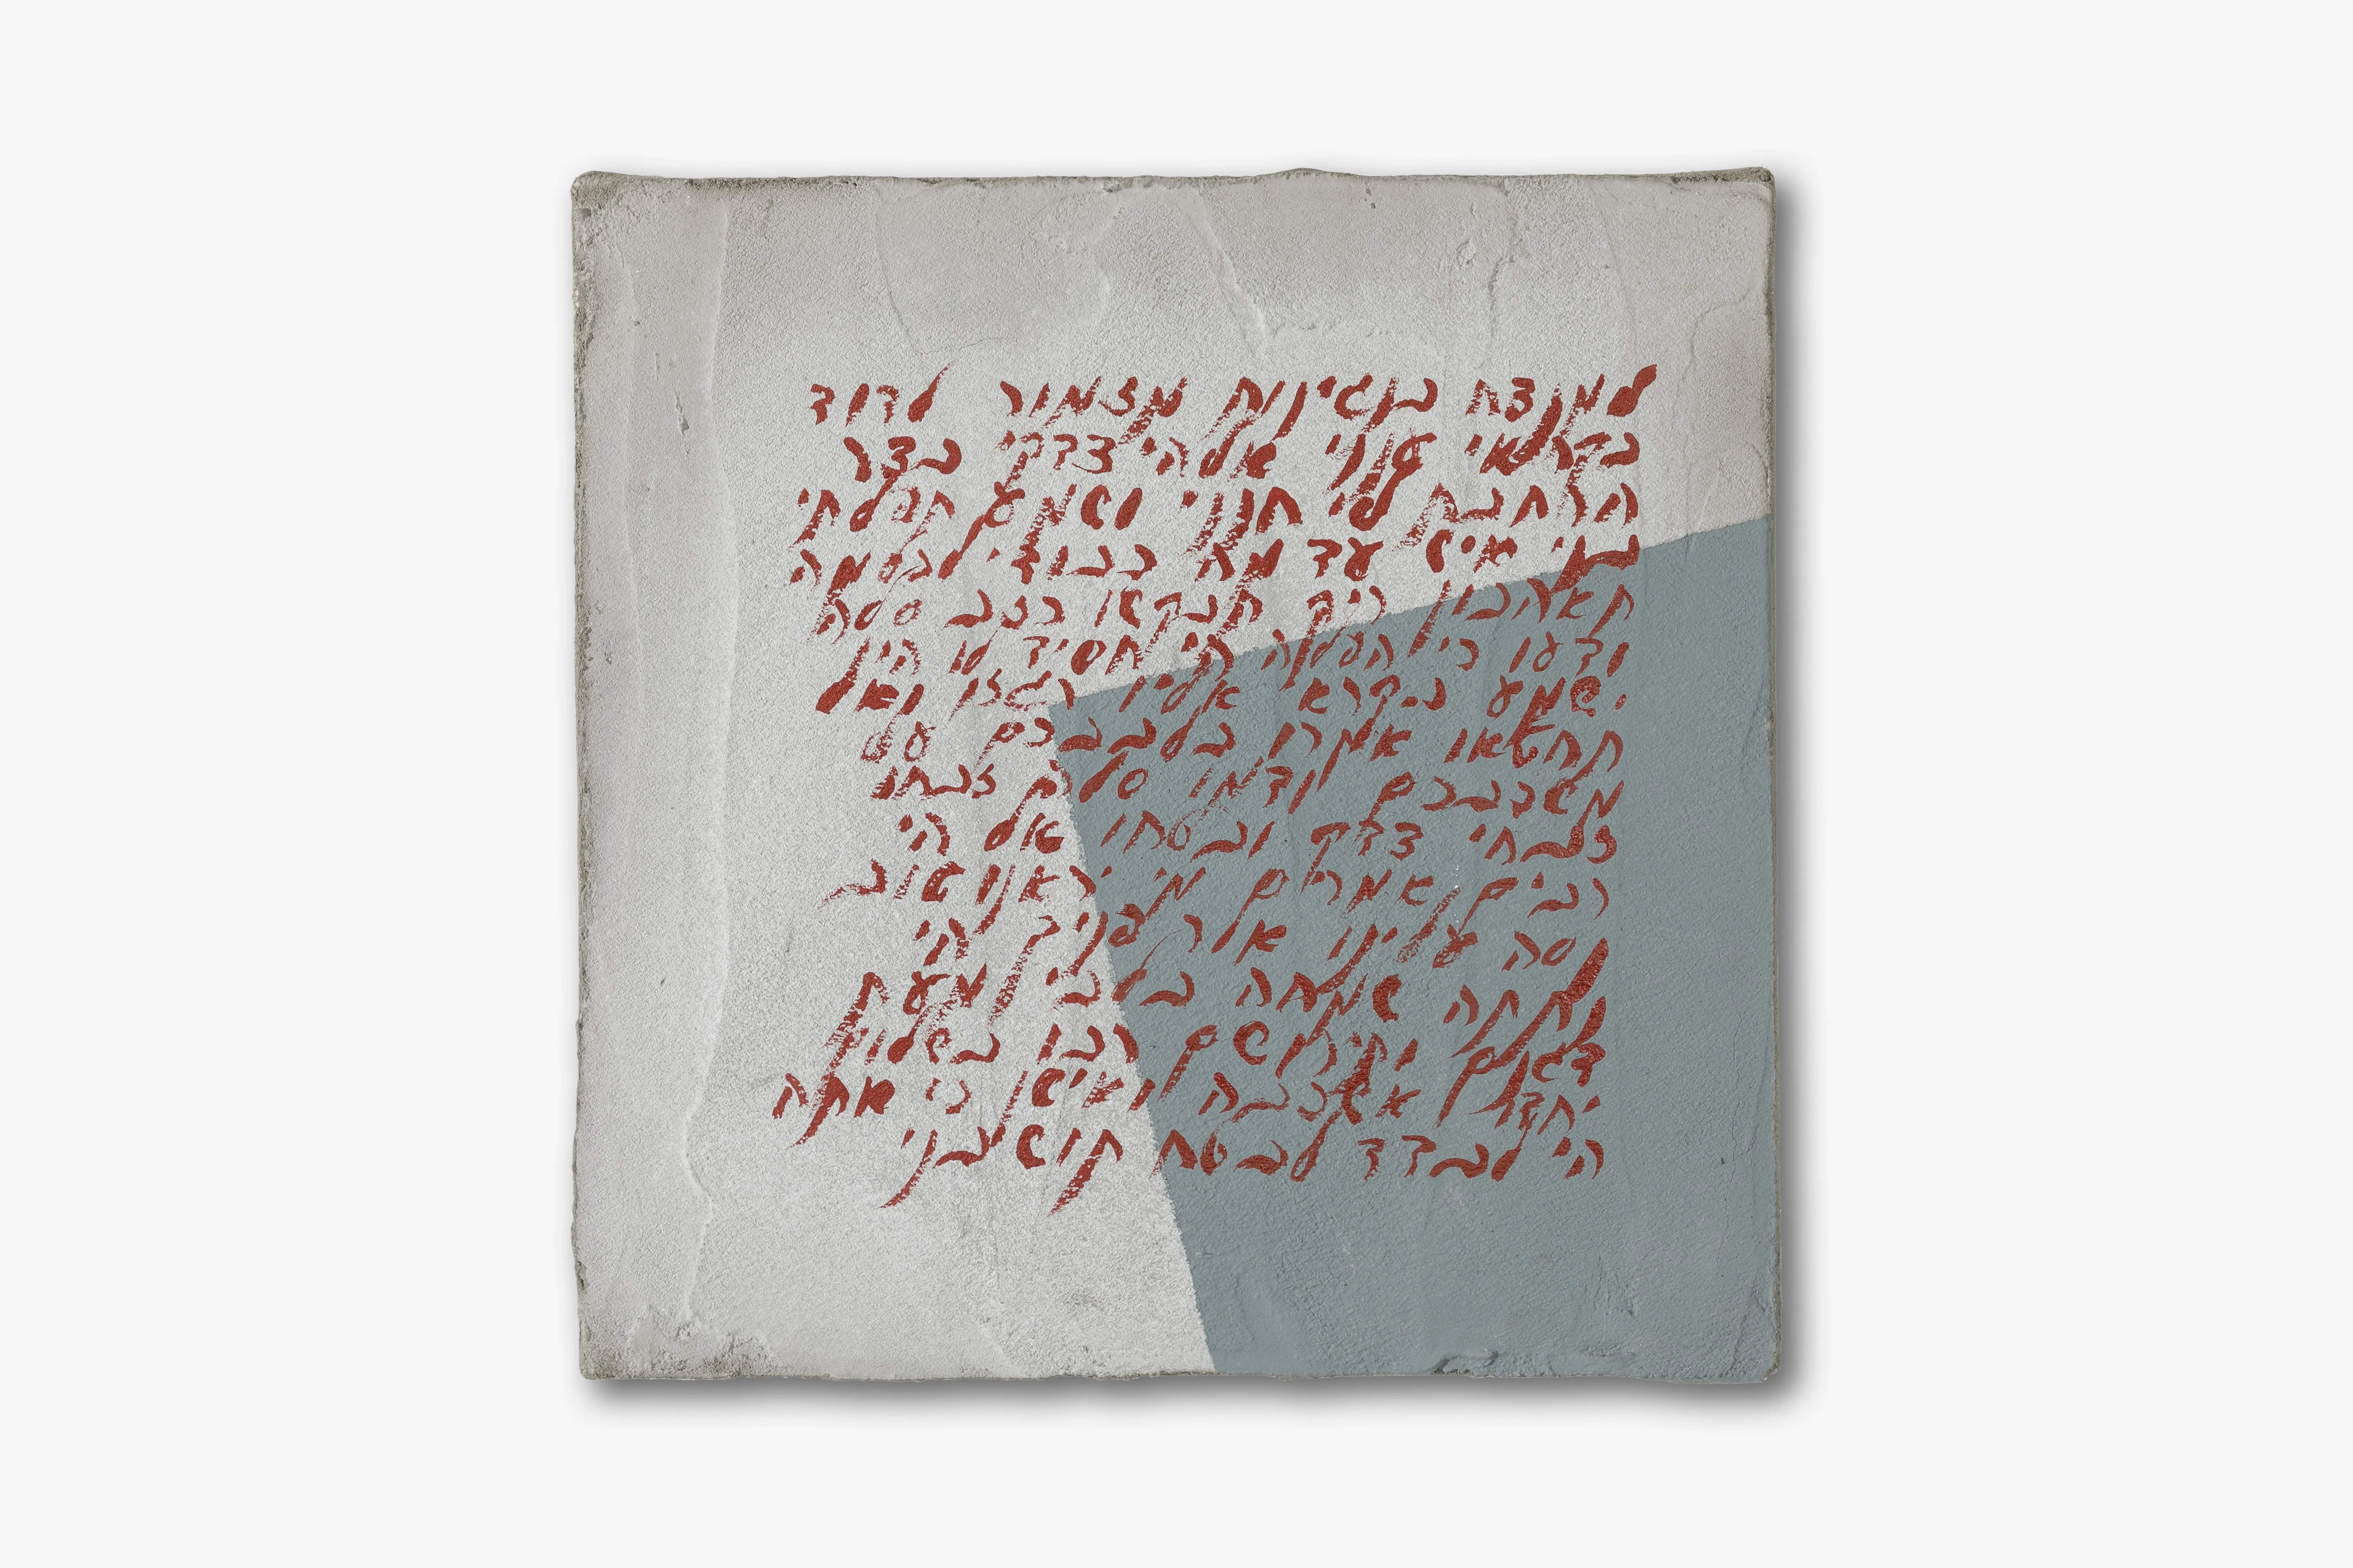 למנצח בנגינות מזמור לדוד
בקראי ענני אלהי צדקי בצר
הרחבת לי חנני ושמע תפלתי
בני איש עד מה כבודי לכלמה
תאהבון ריק תבקשו כזב סלה
ודעו כי הפלה הי חסיד לו הי
ישמע בקראי אליו רגזו ואל
תחטאו אמרו בלבבכם על
משכבכם ודמו סלה זבחו
זבחי צדק ובטחו אל הי
רבים אמרים מי יראנו טוב
נסה עלינו אור פניך הי
נתתה שמחה בלבי מעת
דגנם ותירושם רבו בשלום
יחדו אשכבה ואישן כי אתה
הי לבדד לבטח תושיבני